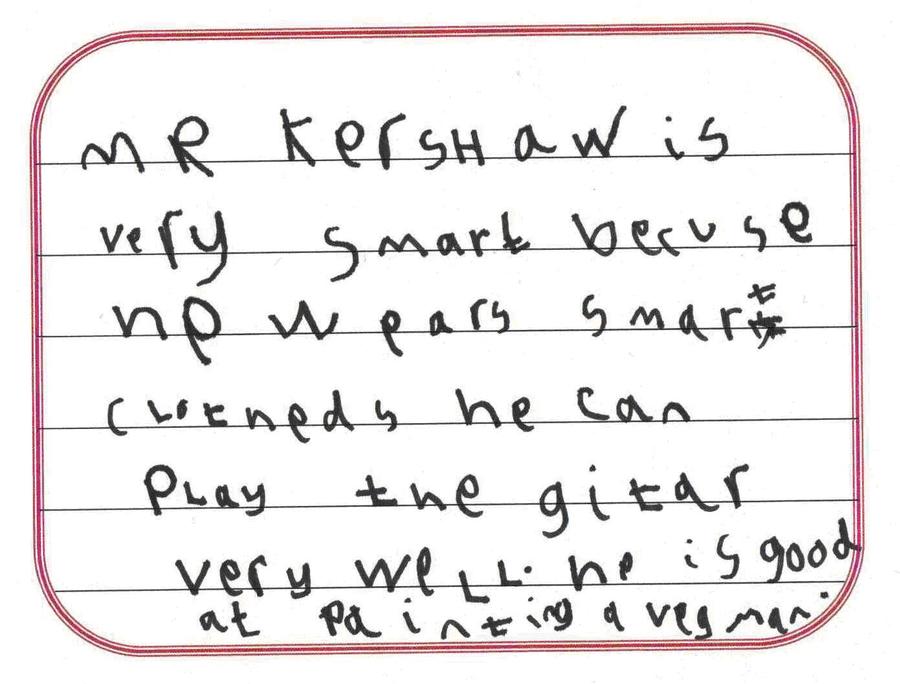 MR KerSHaw is
very smart becuse
he wears smart
cLotheds he can
PLay the gitar
very weLL. he is good
at Painting a veg man.